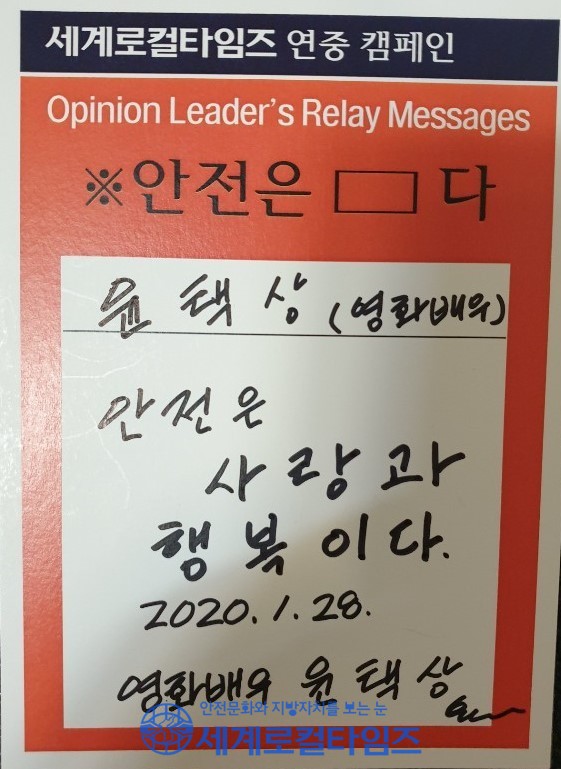 세계로컬타임즈 연중 캠페인
Opinion Leader's Relay Messages
※안전은 □ 다
윤택상 (영화배우)
안전은
사랑과
행복이다.
2020.1.28.
영화배우 윤택상
안전문화와 지방자치를 보는 눈
세계로컬타임즈